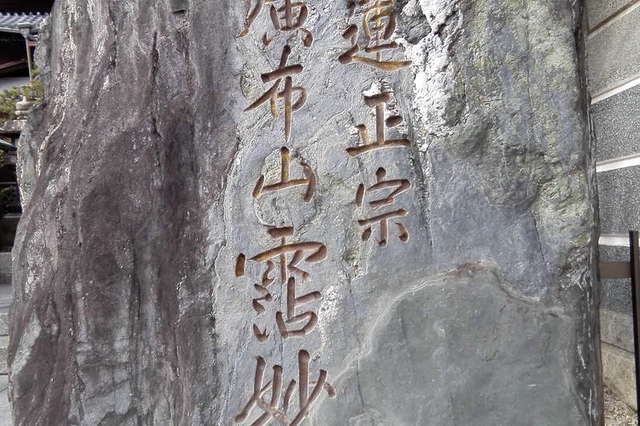 蓮正宗
廣布山霑妙